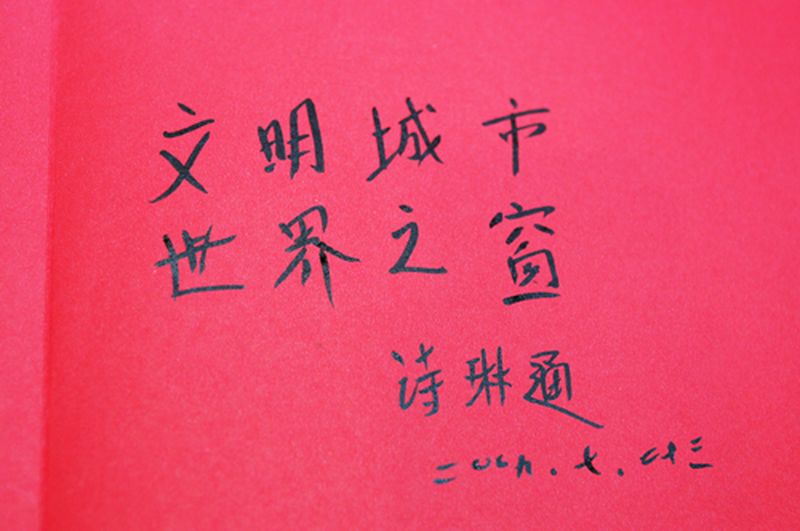 文明城市
世界之窗
诗琳通
二〇〇九.七.二十三